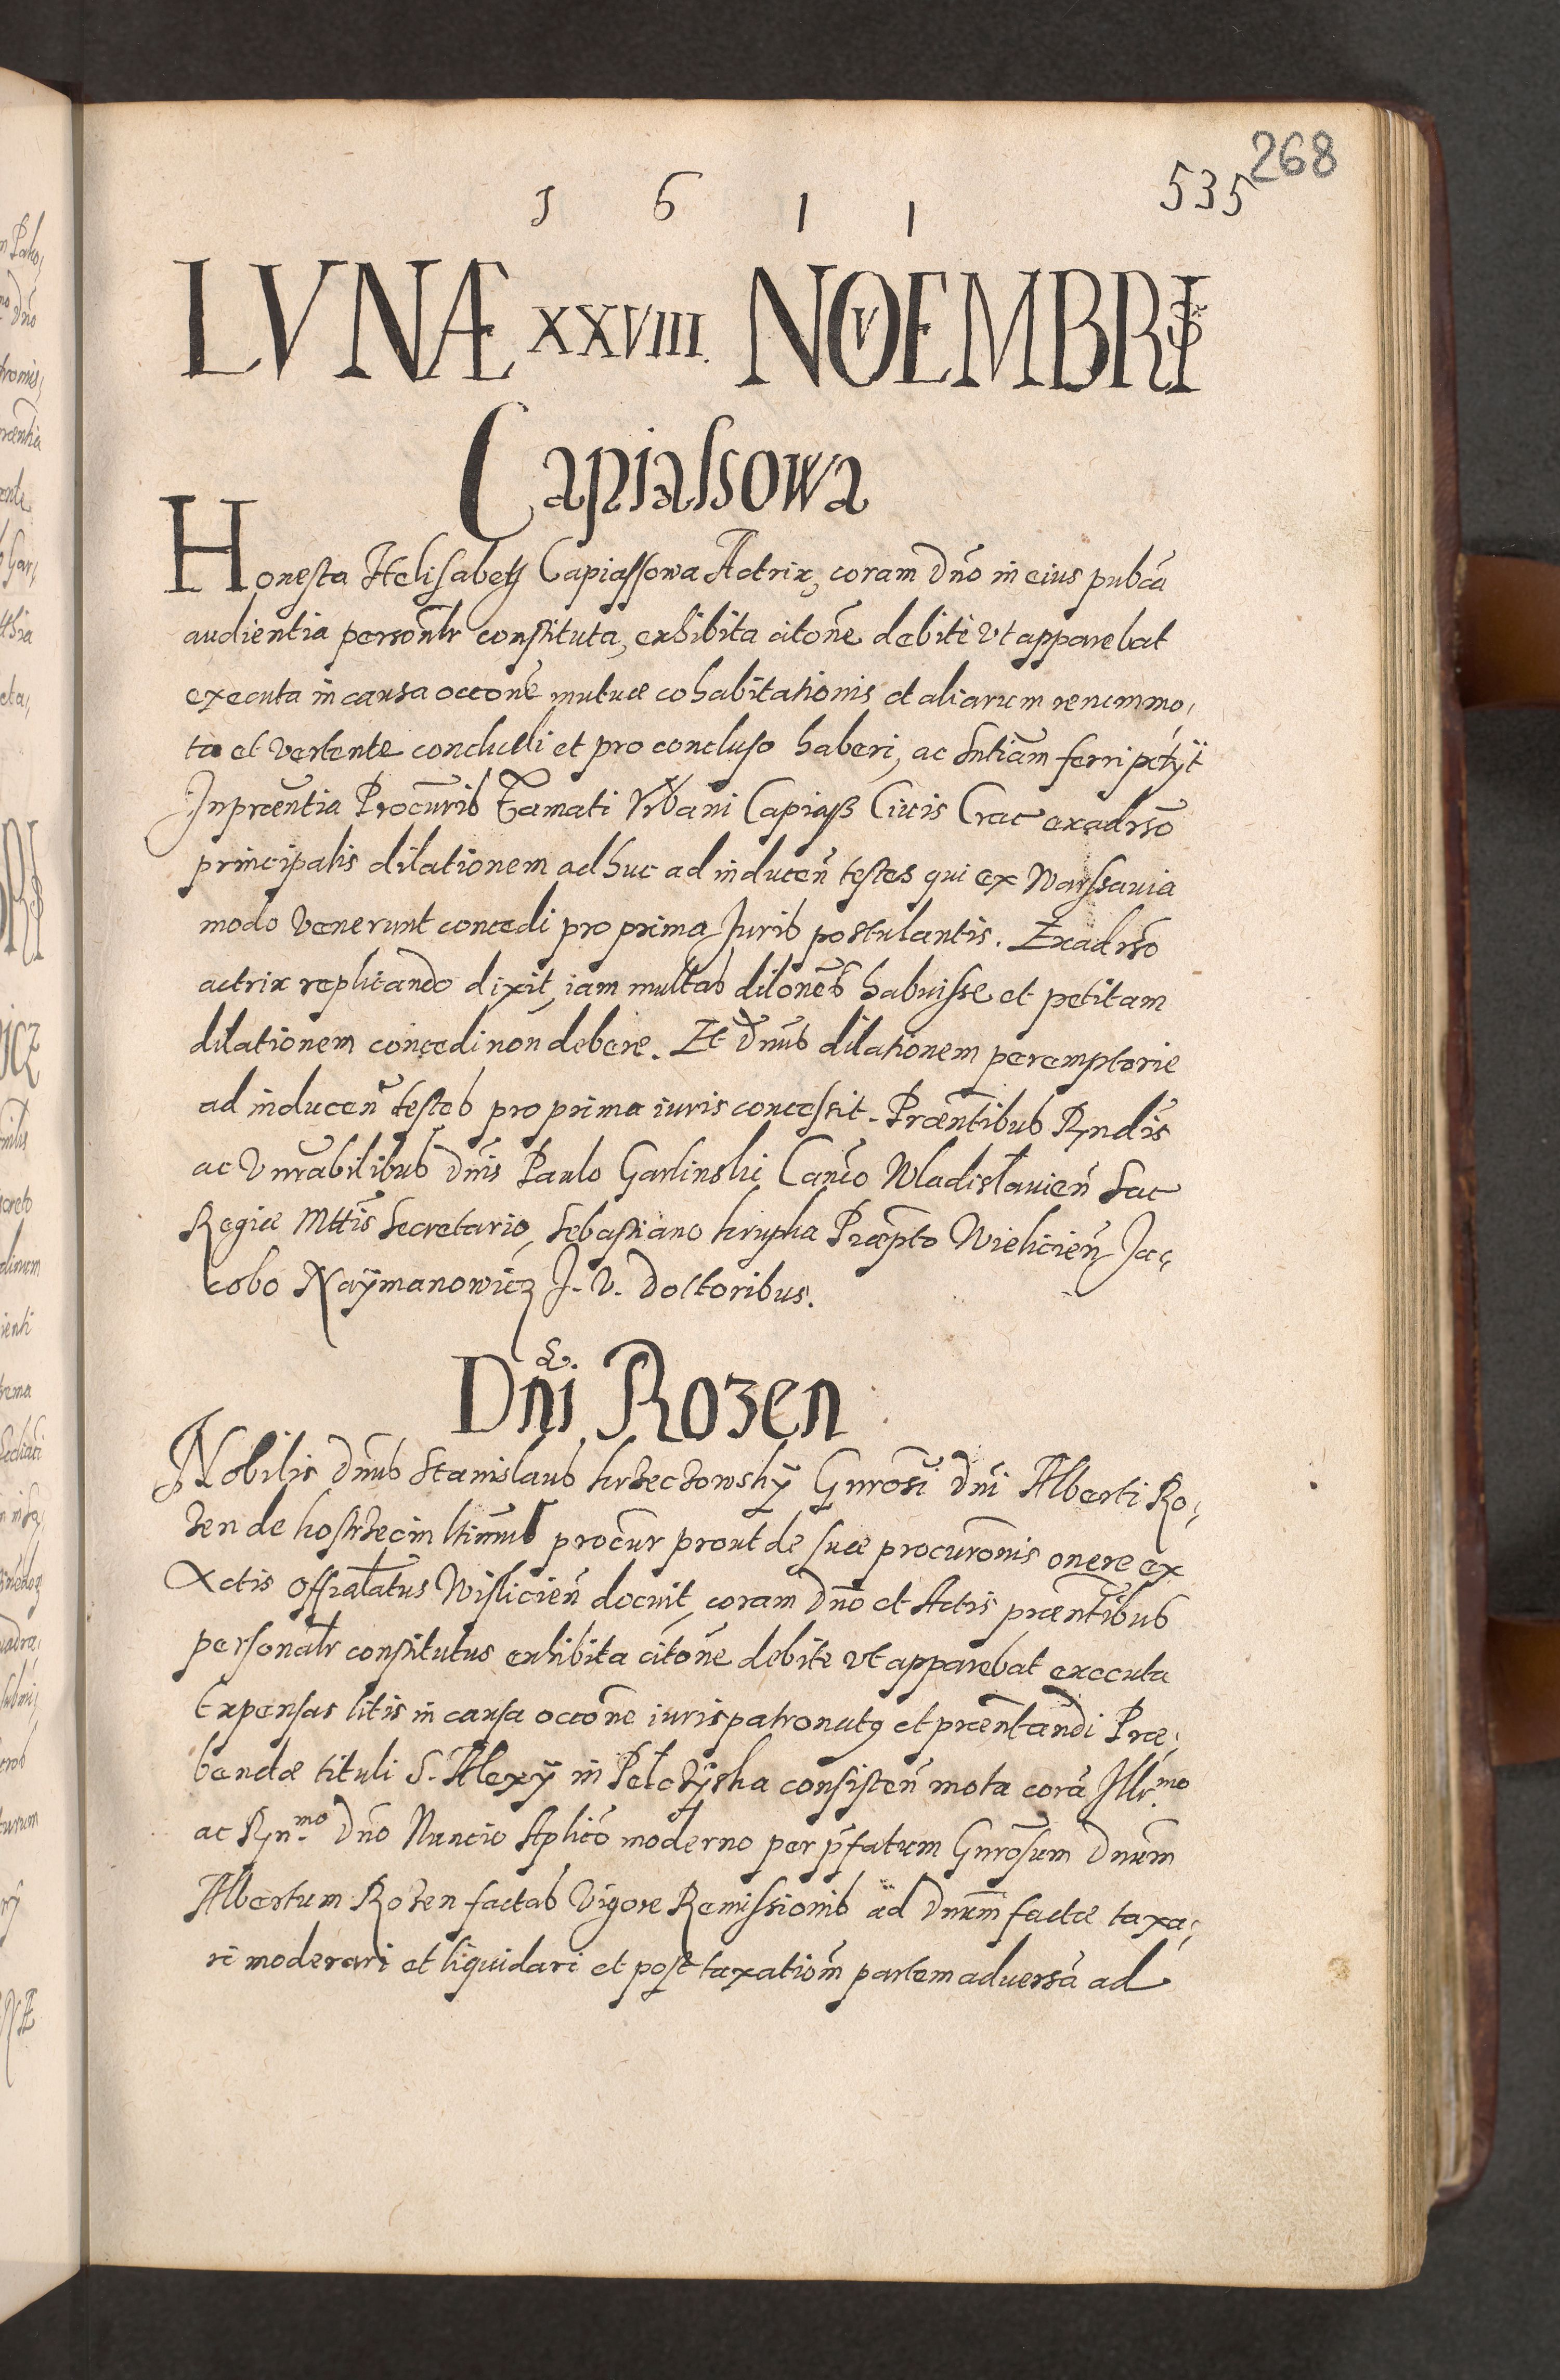 268
1 6 1 1 535
LVNÆ XXVIII. NOVEMBRIS
Capiassowa
Honesta Helisabeth Capiassowa Actrix, coram Dno in eius pubca
audientia personlr constituta, exhibita citone debite vt apparebat
executa in causa occone mutuæ cohabitationis et aliarum rerum mo,
ta et vertente concludi et pro concluso haberi, ac sntiam ferri petÿt
In præntia Procuris famati Vrbani Capiass Civis Crac exadrso
principalis dilationem adhuc ad inducen testes qui ex Warssavia
modo venerunt concedi pro prima Juris postulantis. Exadrso
actrix replicando dixit, iam multas dilones habuisse et petitam
dilationem concedi non debere. Et Dnus dilationem peremptorie
ad inducen testes pro prima iuris concessit. Præntibus Rndis
ac Vnrabilibus Dnis Paulo Garlinski Canco Wladislavien Sac
Regiæ Mttis Secretario, Sebastiano Krupka Præpto Wielicien Ja,
cobo Naÿmanowicz J. V. Doctoribus.
Dni Rozen
Nobilis Dnus Stanislaus Krzeczowskÿ Gnrosi Dni Alberti Ro,
zen de Kostrzecin ltimus procur prout de suæ procuronis onere ex
Actis Offialatus Wislicien docuit, coram Dno et Actis præntibus
personalr constitutus exhibita citone debite vt apparebat executa
Expensas litis in causa occone iurispatronatus et præntandi Præ,
bendæ tituli S. Alexÿ in Pelczÿska consisten mota cora Illr.mo
ac Rn.mo Dno Nuncio Aplico moderno per pfatum Gnrosum Dnum
Albertum Rozen factas vigore Remissionis ad Dnum factæ taxa,
ri moderari et liquidari et post taxationm partem adversa ad